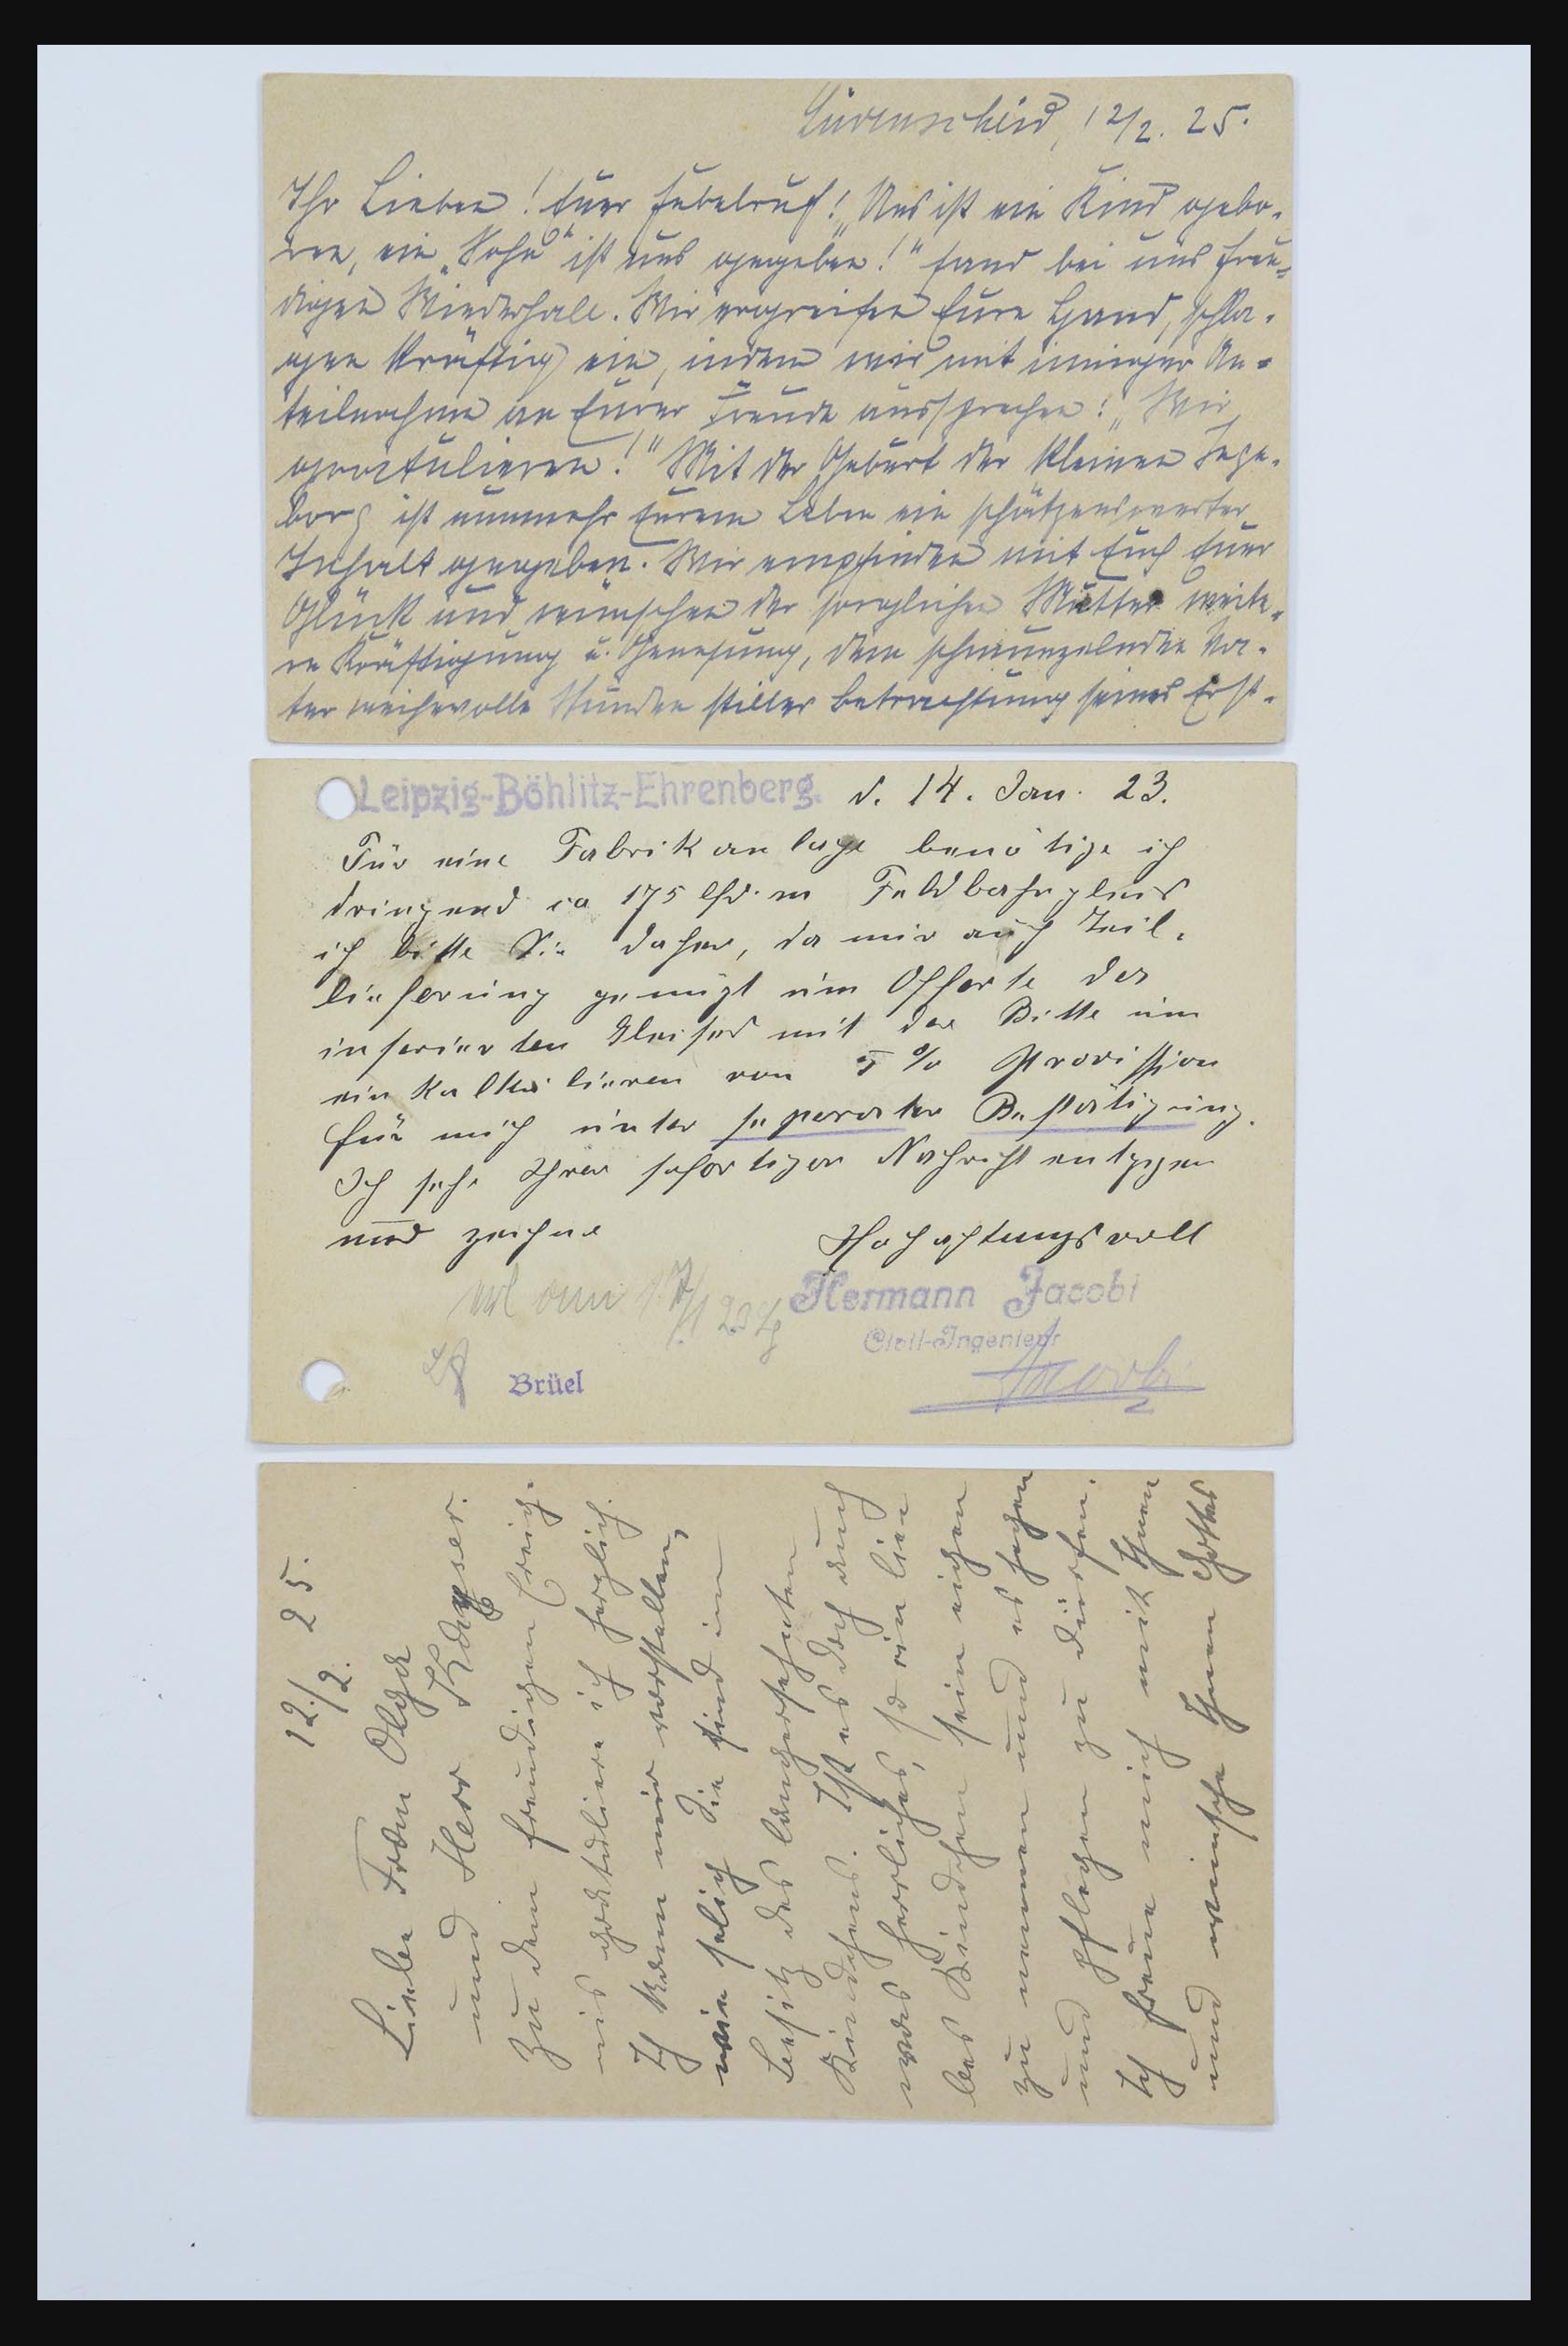 Lüdenscheid, 12/2. 25.
Ihr Lieben! Euer Jubelruf: „Uns ist ein Kind gebo-
ren, ein „Sohn“ ist uns gegeben!“ fand bei uns freu-
digen Wiederhall. Wir ergreifen Eure Hand, schla-
gen kräftig ein, indem wir mit inniger An-
teilnahme an Eurer Freude aussprechen: „Wir
gratulieren!“ Mit der Geburt der kleinen Inge-
borg ist nunmehr Eurem Leben ein schätzenswerter
Inhalt gegeben. Wir empfinden mit Euch Euer
Glück und wünschen der sorglichen Mutter weite-
re Kräftigung u. Genesung, dem schmunzelnden Va-
ter weihevolle Stunden stiller Betrachtung seines Erst-
Leipzig-Böhlitz-Ehrenberg. d. 14. Jan. 23.
Für eine Fabrikanlage benötige ich
dringend ca 175 lfd. m Feldbahngleis
ich bitte Sie daher, da mir auch Teil-
lieferung genügt um Offerte des
inserierten Gleises mit der Bitte um
ein kalkulieren von 5 % Provission
für mich unter separater Bestätigung.
Ich sehe Ihrer sofortigen Nachricht entgegen
und zeichne Hochachtungsvoll
Hermann Jacobi
Civil-Ingenieur
Jacobi
Brüel
12./2. 25.
Liebe Frau Olga
und Herr Kayser.
Zu dem freudigen Ereig-
nis gratuliere ich herzlich.
Ich kann mir vorstellen,
wie selig Sie sind im
Besitz des langersehnten
Kindchens. Ist es doch auch
was herrliches, so ein lie-
bes Kindchen sein eigen
zu nennen und es hegen
und pflegen zu dürfen.
Ich freue mich mit Ihnen
und wünsche Ihnen Gottes